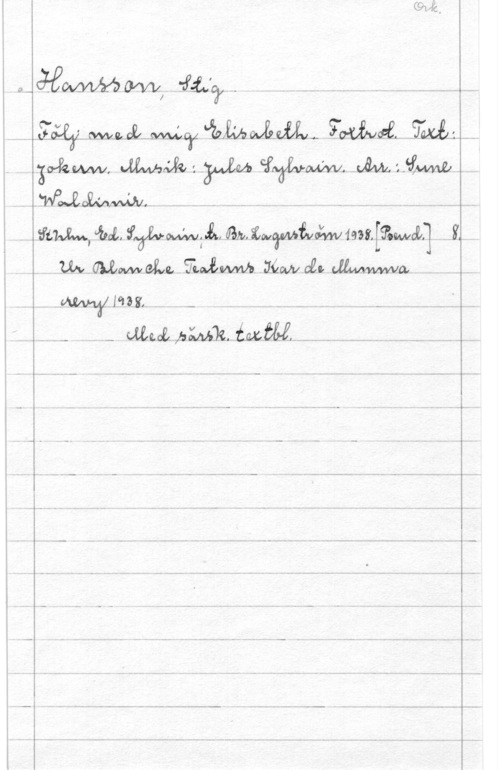 Ork.
Hansson, Stig
Följ med mig Elisabeth. Foxtrot. Text:
Jokern. Musik: Jules Sylvain. Arr.: Sune
Waldimir.
Sthlm, Ed. Sylvain; tr. Br. Lagerström 1938. [Pseud.] 8.
Ur Blanche Teaterns Kar de Mumma
revy 1938.
Med särsk. textbl.